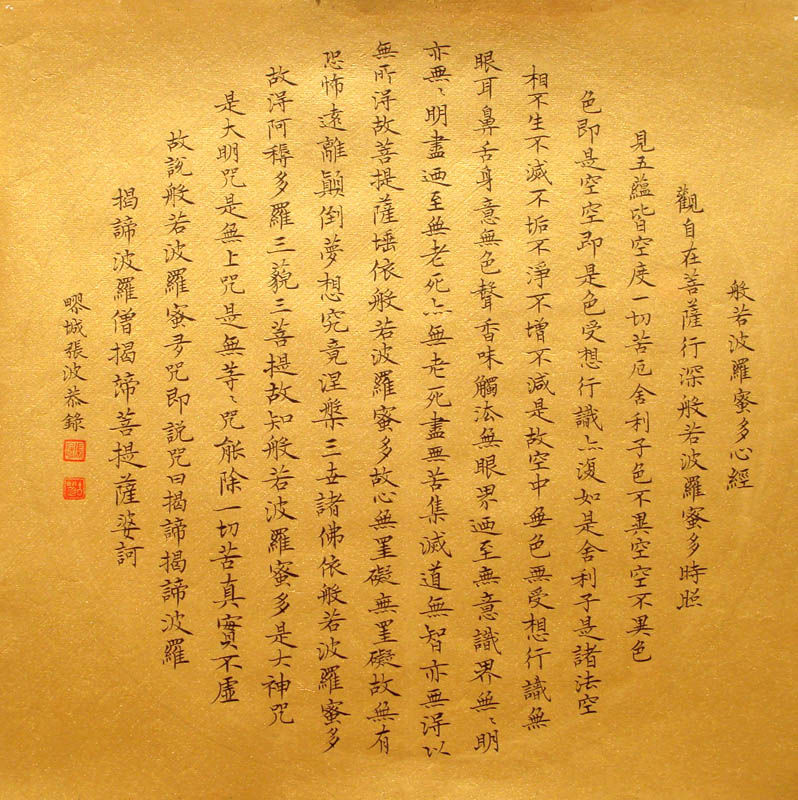 般若波羅蜜多心經
觀自在菩薩行深般若波羅蜜多時照
見五蘊皆空度一切苦厄舍利子色不異空空不異色
色即是空空即是色受想行識亦復如是舍利子是諸法空
相不生不滅不垢不淨不增不減是故空中無色無受想行識無
眼耳鼻舌身意無色聲香味觸法無眼界迺至無意識界無〻明
亦無〻明盡迺至無老死亦無老死盡無苦集滅道無智亦無得以
無所得故菩提薩埵依般若波羅蜜多故心無罣礙無罣礙故無有
恐怖遠離顛倒夢想究竟涅槃三世諸佛依般若波羅蜜多
故得阿耨多羅三藐三菩提故知般若波羅蜜多是大神咒
是大明咒是無上咒是無等〻咒能除一切苦真實不虛
故說般若波羅蜜多咒即說咒曰揭諦揭諦波羅
揭諦波羅僧揭諦菩提薩婆訶
城張波恭錄